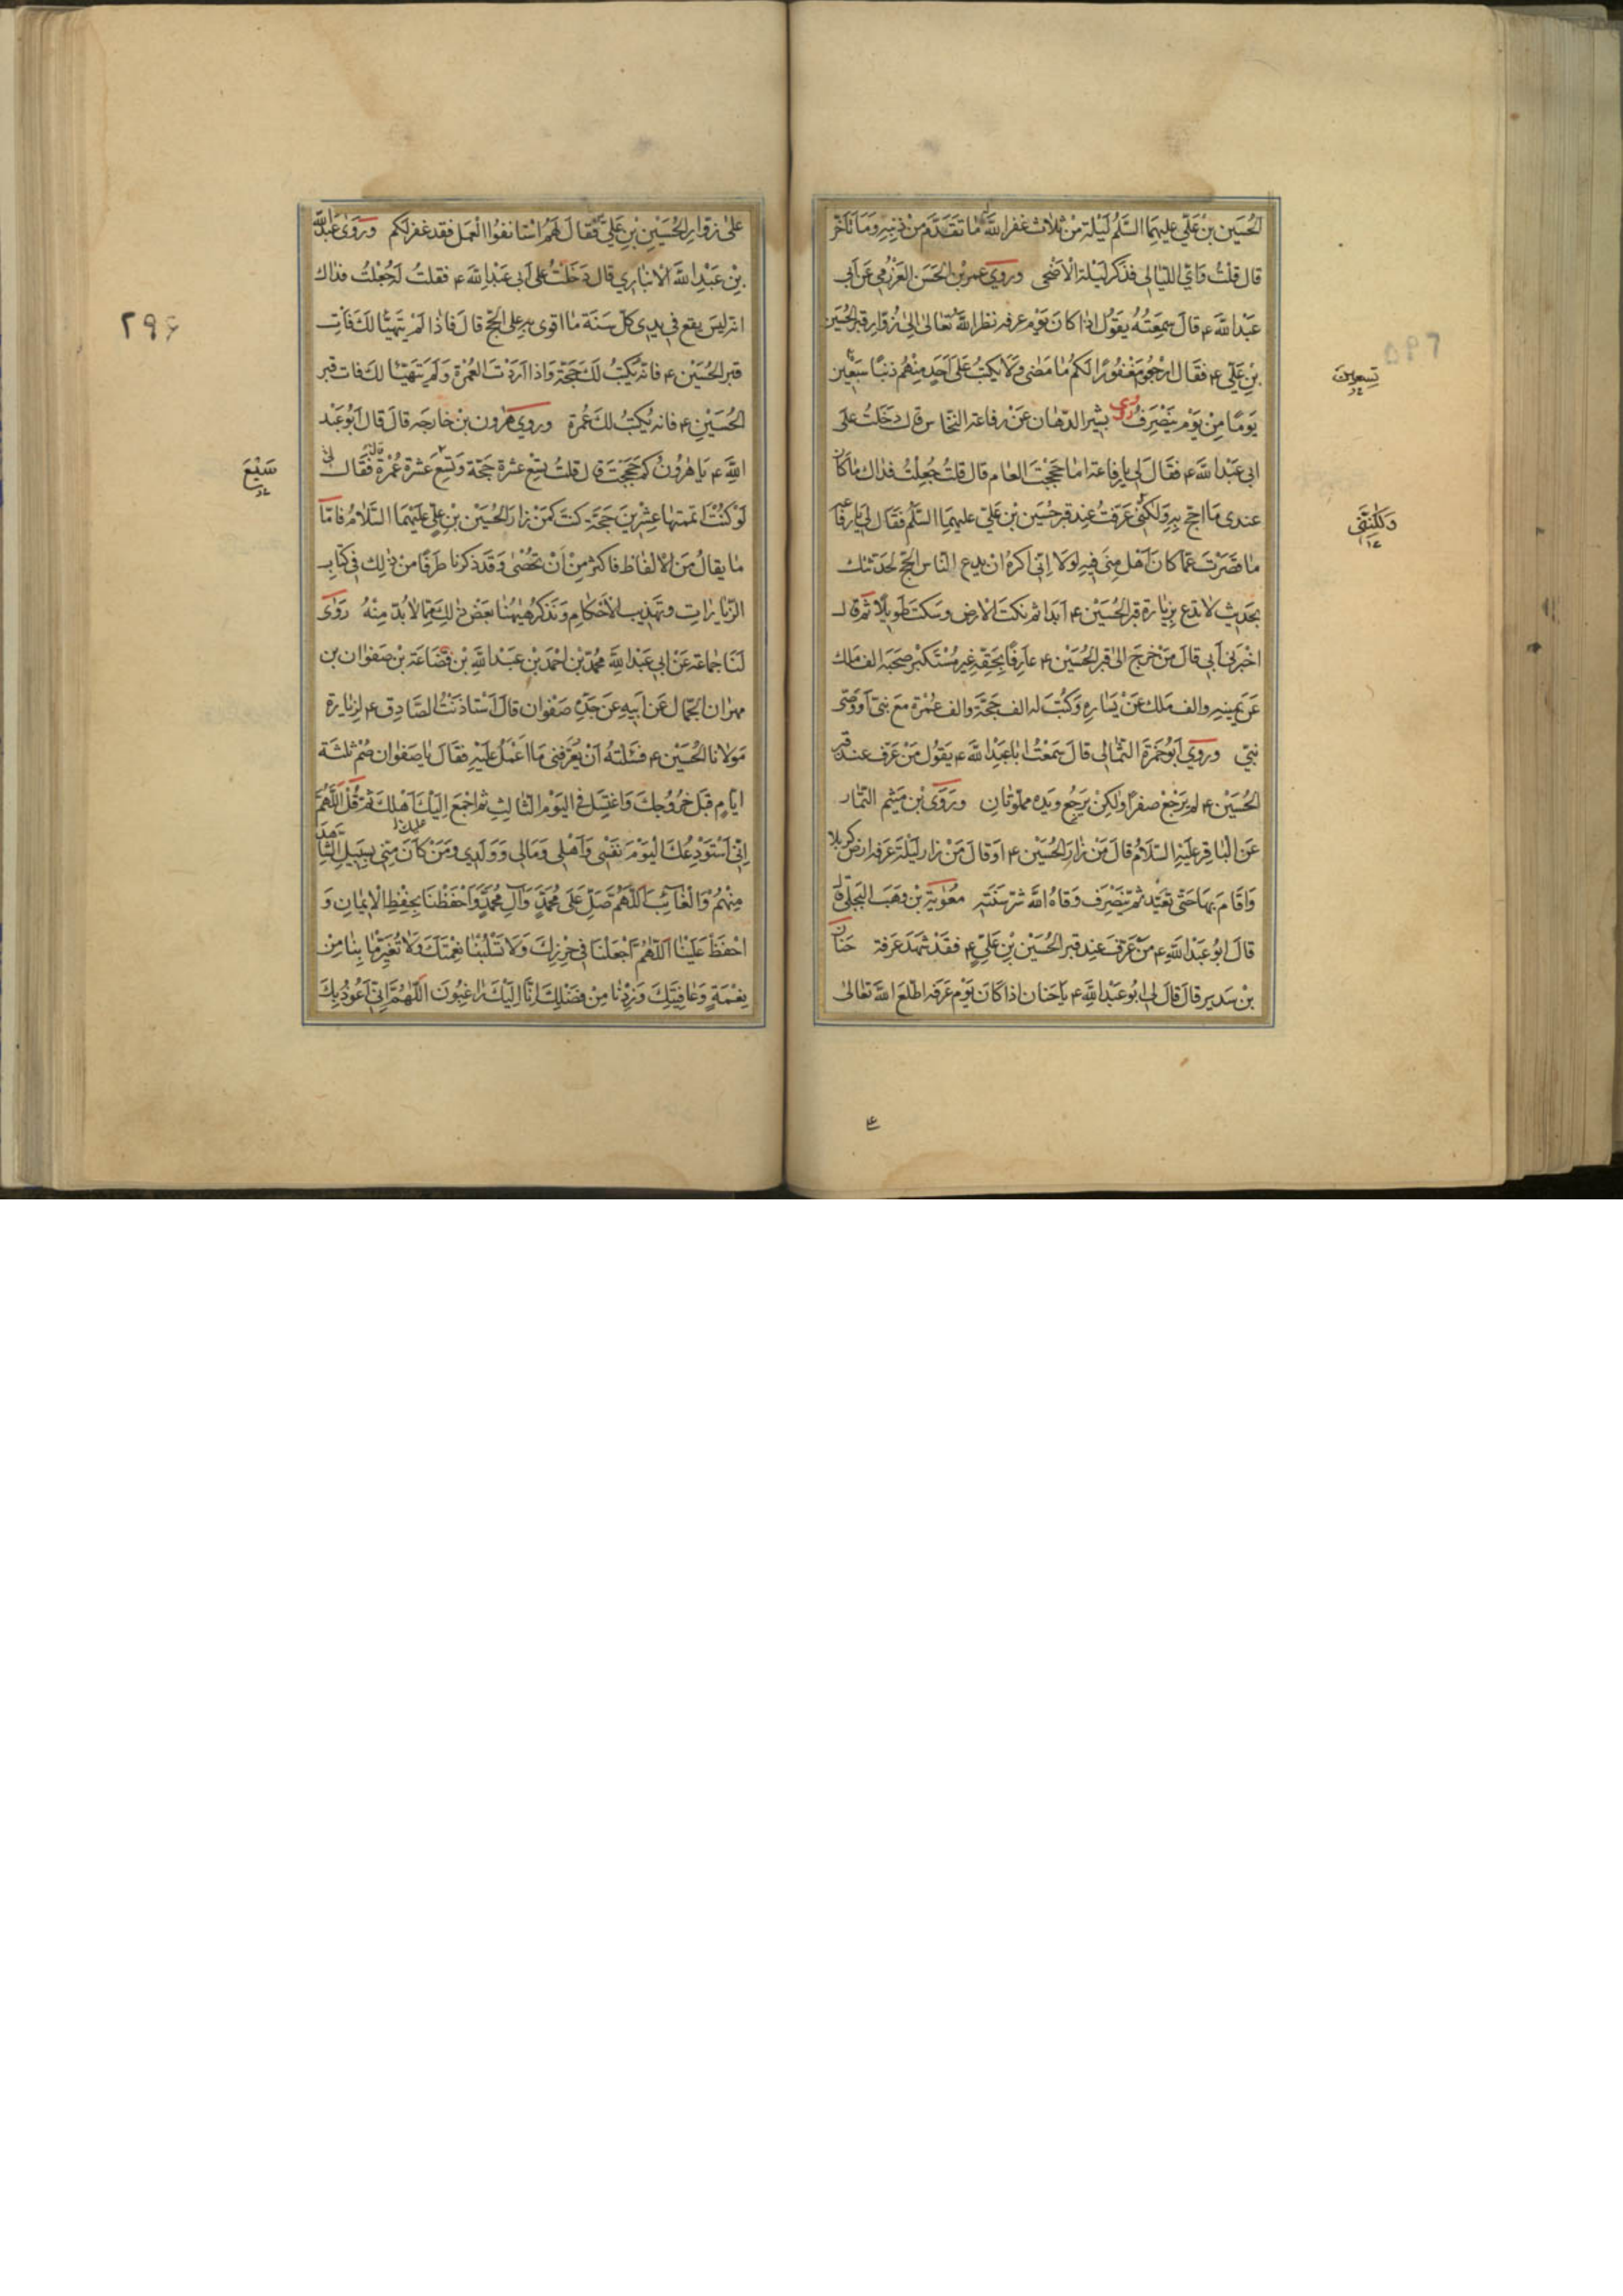 الحُسَين بن عَلّي عليهِمَا السَّلم لَيْلة مِنْ ثلاث غفر اللّٰه مَا تقَدَّم مِنْ ذنبِهِ وَمَا تَأخّر
قال قلتُ فَاي الليَالي فذكر لَيلة الاضحى وروي عمر بْن الحَسَن العَرْزَمي عَن أبي
عبْد اللّٰه ع قالَ سَمِعتُهُ يقوُل اذا كانَ يَوْم عرفه نظر اللّٰه تعَالىٰ الىٰ زوّار قبر الحُسَين
بن عَلّي ع فقَال ارجعُو مَغْفورًا لكم مَا مَضى وَلا يكتبُ عَلىٰ اَحَدٍ مِنْهم ذنبًا سَبْعين
تِسعين
يَومًا مِنْ يَوْم ينْصَرِفُ روي بشير الدهّان عَنْ رفاعة النحّاس قال دَخَلتُ عَلى
ابي عَبْد اللّٰه ع فقَال لي يا رفاعة امَا حَجَجْتَ العام قال قلتُ جُعِلتُ فداك مَا كان
عندى مَا احجّ بهِ وَلكنّي عَرفتُ عِند قبر حُسَين بْن عَلي عليهِمَا السَّلم فقَال لي يَا رفاعه
وَلكِنَّنِي
مَا قصَّرتَ عمّا كان اَهْل مِنىٰ فيهِ لولا اِنّي اكرهُ ان يدع الناس الحَجّ لحدثتك
بحَديث لا تدع زيَارة قبر الحُسَيْن ع اَبَدا ثم نكتَ الارض وسَكت طَويلًا ثم قال
اخبَرني اَبي قال مَنْ خَرج الىٰ قبر الحُسَيْن ع عارفًا بحَقّهِ غير مُسْتكبر صَحبَه الف مَلك
عَن يمينهِ والف مَلك عَنْ يَسَارهِ وَكُتبَ له الف حَجّة والف عُمْرة مَعَ نبيّ اَو وَصي
نبيّ وروي اَبُو حَمزة الثمالي قال سَمعْتُ ابَا عَبْد اللّٰه ع يقُول مَنْ عَرّف عند قبر
الحُسَيْن ع لم يرْجَعْ صفرًا ولكِنْ يَرجُع ويَده مملوّتانِ وروى بْن مَيثم التمّار
عَن البَاقِر عَليْهِ السَّلامُ قال مَن زار الحُسَيْن ع اَو قال مَنْ زار ليْلة عَرفة ارض كربلا
وَاقامَ بهَا حَتّى يعَيّد ثم ينصَرف وقاهُ اللّٰه شرّ سَنَتهِ مُعوية بْن وهَبَ البَجَلي قال
قال اَبُو عبْد اللّٰهِ ع مَنْ عَرّفَ عِند قبر الحُسَيْن بْنِ عَلِيّ ع فقَدْ شهَدَ عَرفة حَنان
بْن سَدير قال قالَ لي ابُو عَبْد اللّٰهِ ع يَا حَنان اذا كانَ يَوْم عَرفه اطّلعَ اللّٰه تعَالىٰ
علىٰ زوّار الحُسَيْن بْنِ عَليّ فقَال لهَم اسْتانفُوا العمَل فقد غفر لكم وروَىٰ عَبْد اللّٰه
بْنِ عَبْد اللّٰهَ الانبَاري قال دَخَلتُ عَلىٰ اَبى عَبْد اللّٰه ع فقلتُ لهُ جُعلتُ فداك
انه ليسَ يقع في يدِي كلّ سَنَة مَا اقوى بهِ علىٰ الحَجّ قالَ فَاذا لمْ يتَهيّا لكَ فَاتِ
٢٩۶
قبر الحُسَيْن ع فانه يُكتبُ لكَ حَجّة وَاذا اَردْتَ العُمْرة ولم يَتهيّا لك فات قبر
الحُسَيْن ع فانه يُكتبُ لك عُمرة وروي هٰرون بْن خارجَه قالَ قال اَبُو عَبْد
اللّٰه ع يَا هٰرُونُ كم حَججتَ قال قلتُ تِسْع عشرة حَجّة وَتِسْعَ عَشرة عُمْرة فقال لي
سَبْعَ
لَوْ كُنْتَ اتممتهَا عِشرينَ حَجّة كنتَ كمَنْ زارَ الحُسَيْن بْنِ عَلّي عليهمَا السَّلامُ فامّا
مَا يقالُ مَن الالفَاظ فاكثرُ مِنْ اَنْ تحُصْىٰ وقد ذكرنا طرفًا منْ ذٰلِك في كتابِ
الزيارَاتِ وتهَذيبِ الاَحكامِ وَنَذكرُ هٰيهُنا بَعْض ذٰلِكَ ممّا لا بُدّ مِنْهُ رَوىٰ
لَنَا جَماعة عَنْ ابي عَبْد اللّٰهِ محُمّد بْن احَمد بْن عَبْد اللّٰهِ بْن قُضَاعَة بْن صَفوَان بن
مهران الجمّال عَن اَبيهِ عَن جَدِّهِ صَفوان قال اسْتاذَنْتُ الصّادِق ع لِزيارة
مَولانا الحُسَيْن ع فسَئلتهُ اَنْ يُعَرّفني مَا اعْمَلُ عَليْهِ فقال يَا صَفوان صُمْ ثلثة
ايّامٍ قبلَ خُرُوجكَ وَاغتسِل في اليَومْ الثالِثِ ثم اجْمَع اِلَيْكَ اَهْلكَ ثم قُل اللّٰهُمَّ
اِنّي اَسْتَودِعُكَ اليَوْمَ نفَسْي وَاَهْلي وَمَالي وَوَلدي وَمَنْ كانَ مِنّي بِسَبِيلٍ الشّاهِدَ
مِنْهُمْ وَالغَائِبَ اَللّٰهُمَّ صَلِّ عَلىٰ مُحَمّدٍ وَآلِ مُحَمَّدٍ وَاحْفَظْنَا بحِفْظِ الاِيْمانِ وَ
احْفَظْ عَليْنا اَللّٰهُمَّ اجْعَلْنَا في حِرْزِكَ وَلا تَسْلُبْنا نِعْمَتَكَ وَلا تُغَيّرْ مٰا بِنٰا مِنْ
نِعْمَةٍ وَعَافِيَتِكَ وَزِدْنا مِنْ فضْلِكَ اِنّا اِلَيْكَ رٰاغِبُونَ اَللّٰهُمَّ اِنّي اَعُوذُ بِكَ